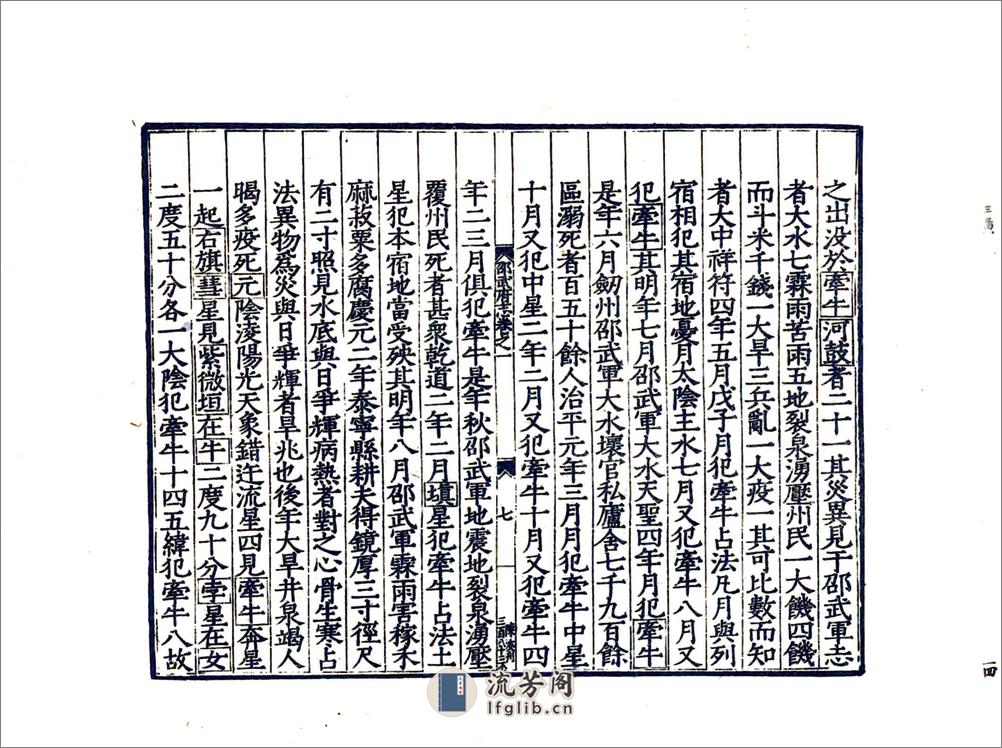 之出没於牽牛河鼓者二十一其災異見于邵武軍志
者大水七霖雨苦雨五地裂泉湧壓州民一大饑四饑
而斗米千錢一大旱三兵亂一大疫一其可比數而知
者大中祥符四年五月戊子月犯牽牛占法凡月與列
宿相犯其宿地憂月太陰主水七月又犯牽牛八月又
犯牽牛其明年七月邵武軍大水天聖四年月犯牽牛
是年六月劒州邵武軍大水壞官私廬舍七千九百餘
區溺死者百五十餘人治平元年三月月犯牽牛中星
十月又犯中星二年二月又犯牽牛十月又犯牽牛四
邵武府志卷之一
七
年二三月俱犯牽牛是年秋邵武軍地震地裂泉湧壓
覆州民死者甚衆乾道二年二月填星犯牽牛占法土
星犯本宿地當受殃其明年八月邵武軍霖雨害稼禾
麻菽粟多腐慶元二年泰寧縣耕夫得鏡厚三寸徑尺
有二寸照見水底與日爭輝病熱者對之心骨生寒占
法異物為災與日爭輝者旱兆也後年大旱井泉竭人
暍多疫死元陰淩陽光天象錯迕流星四見牽牛奔星
一起右旗彗星見紫微垣在牛二度九十分孛星在女
二度五十分各一大陰犯牽牛十四五緯犯牽牛八故
流芳阁
lfglib.cn